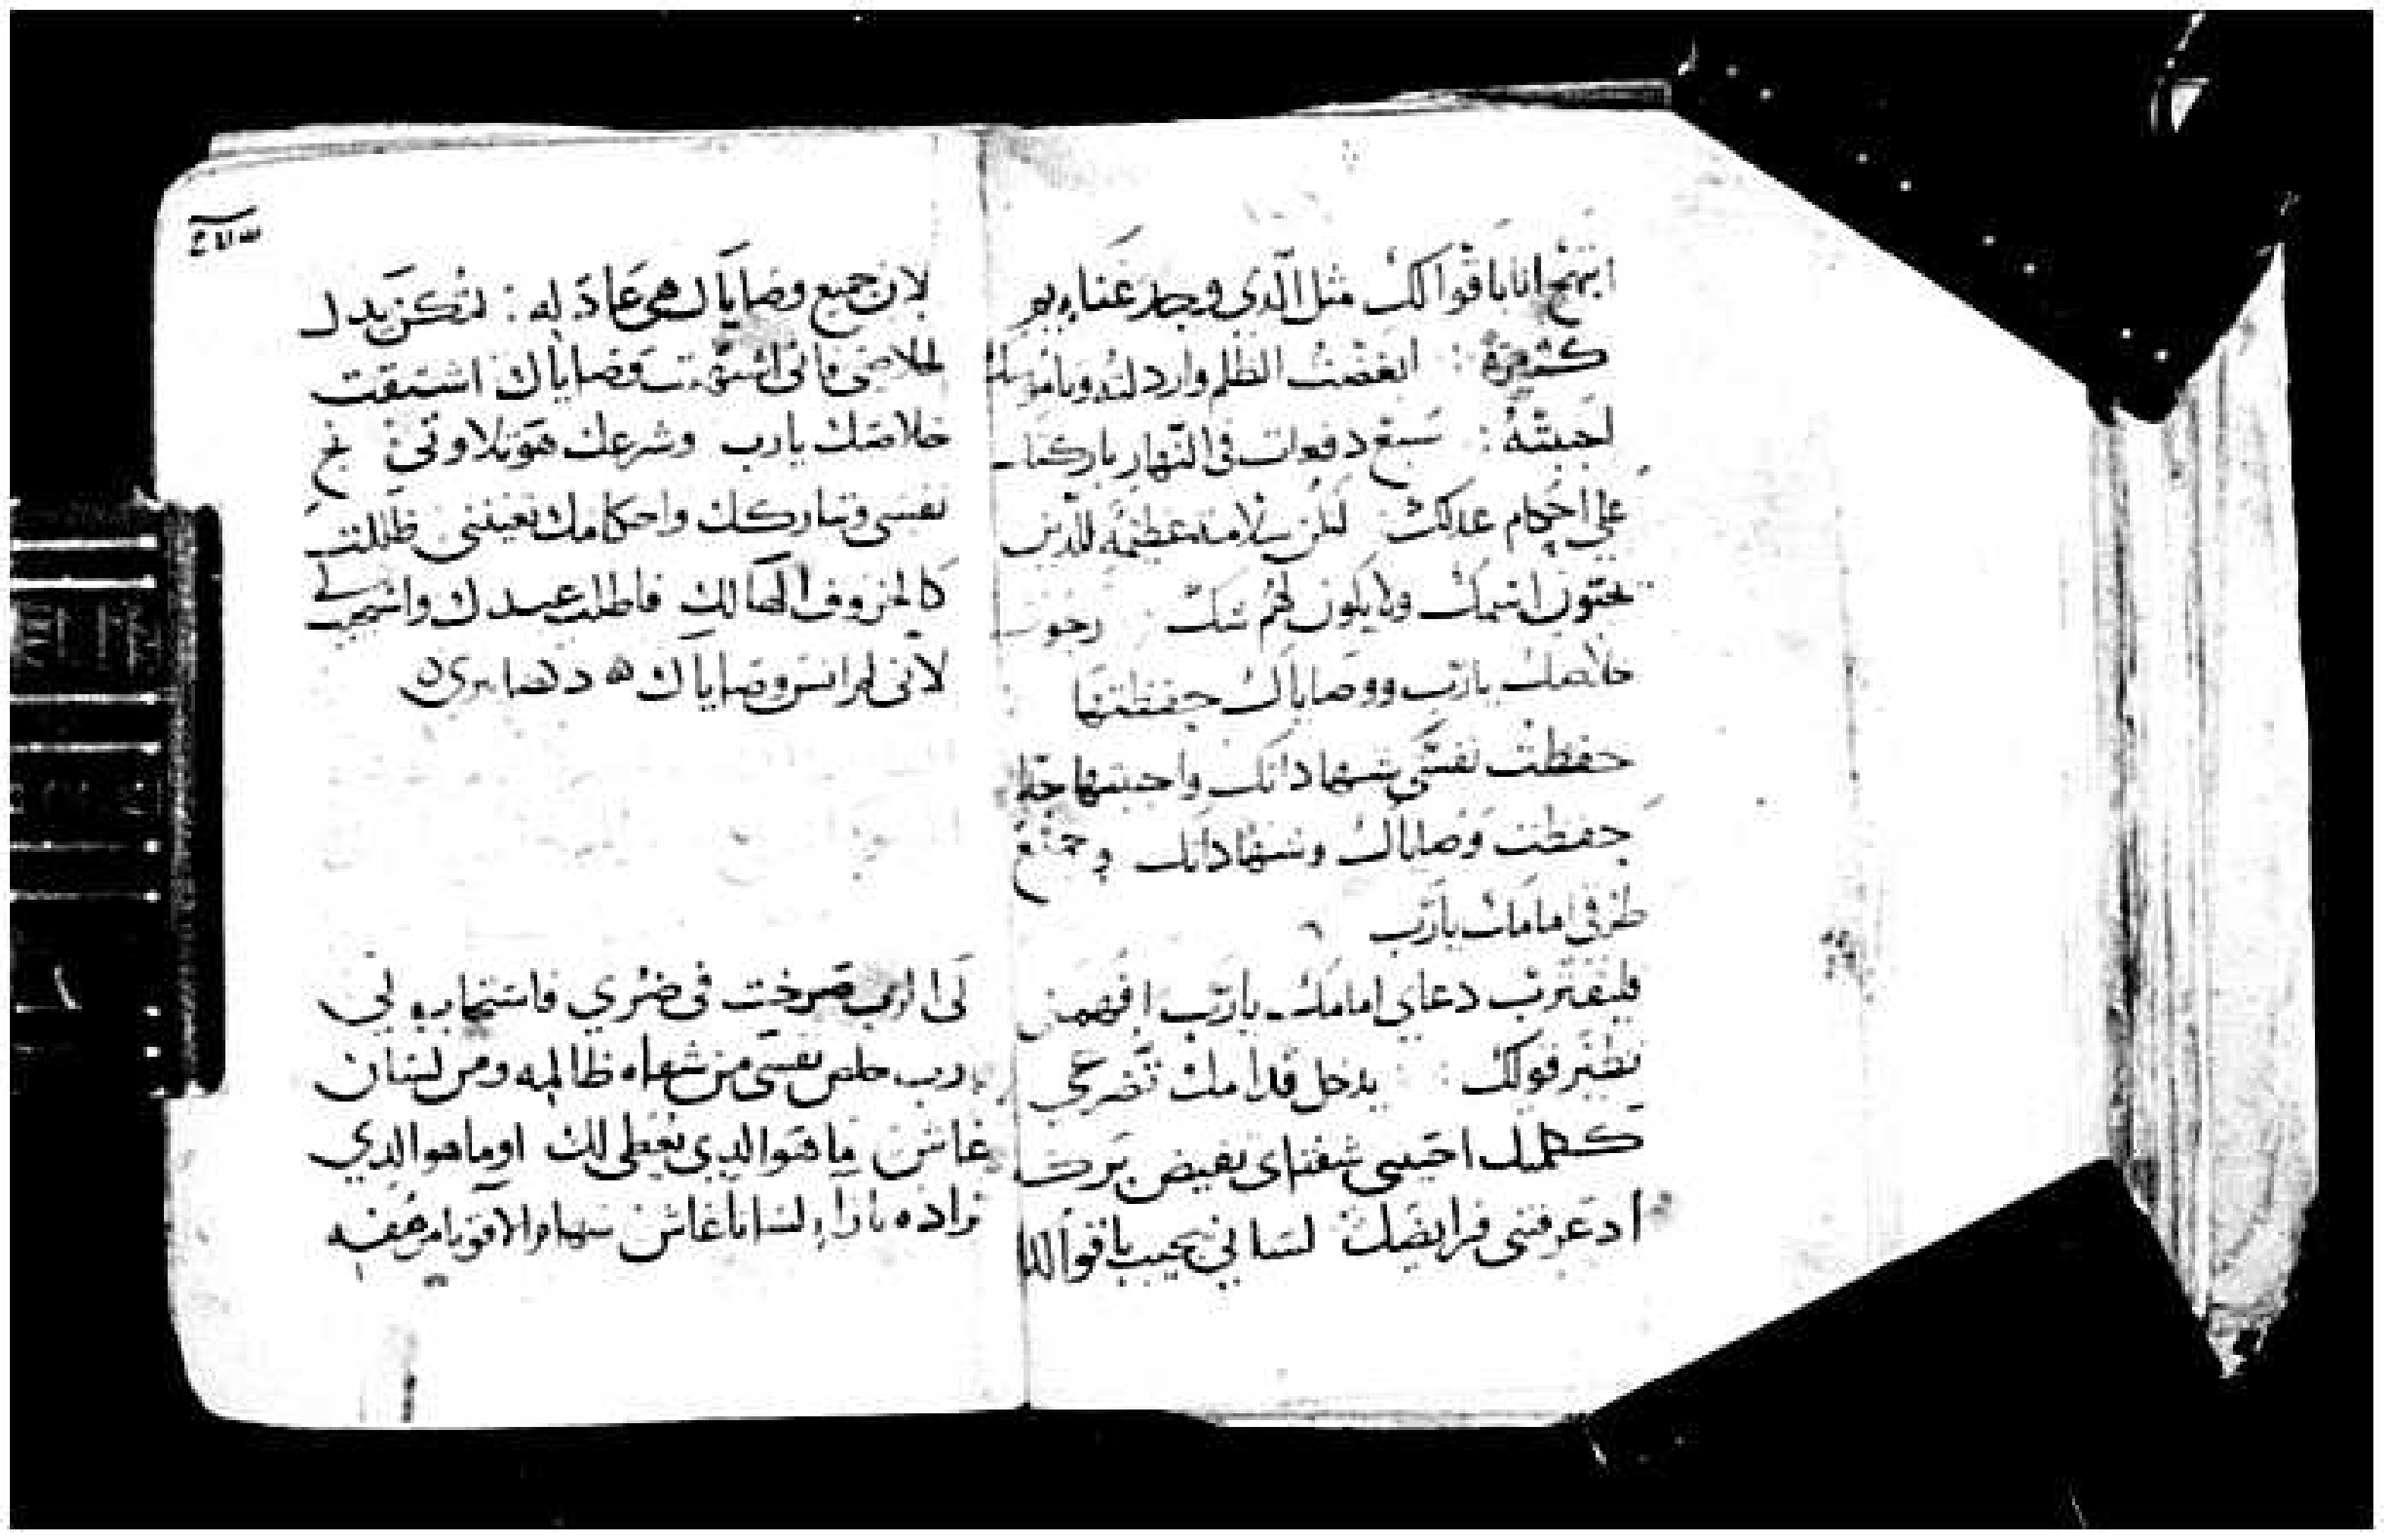 ابتهج انا باقوالك مثل الذي وجد غنايم
كثيره : ابغضت الظلم واردلته وناموسك
احببته : سبع دفعات في النهار باركتك
على احكام عدلك : لتكن سلامه عظيمه للذين
يحبون اسمك ولا يكون لهم شك : رجوت
خلاصك يارب ووصاياك حفظتها
حفظت نفسي شهاداتك واحببتها جدا
حفظت وصاياك وشهاداتك وجميع
طرقي امامك يارب
فليقترب دعاي امامك يارب افهمني
نظير قولك : يدخل قدامك تضرعي
ككلمتك احييني شفتاي تفيض بركه
اد عرفتني فرايضك لساني يجيب باقوالك
لان جميع وصاياك هي عادله : لتكن يدك
لخلاصي فاني اشتهيت وصاياك اشتقت
خلاصك يارب وشرعك هو تلاوتي تحي
نفسي وتباركك واحكامك تعينني ظللت
كالخروف الهالك فاطلب عبدك
لاني لم انس وصاياك
الى الرب صرخت في ضري فاستجاب لي
يارب خلص نفسي من شفاه ظالمه ومن لسان
غاش ما هو الدي يعطى لك او ما هو الدي
تزاده بازاء لسانا غاش سهام الاقويا مرهفه